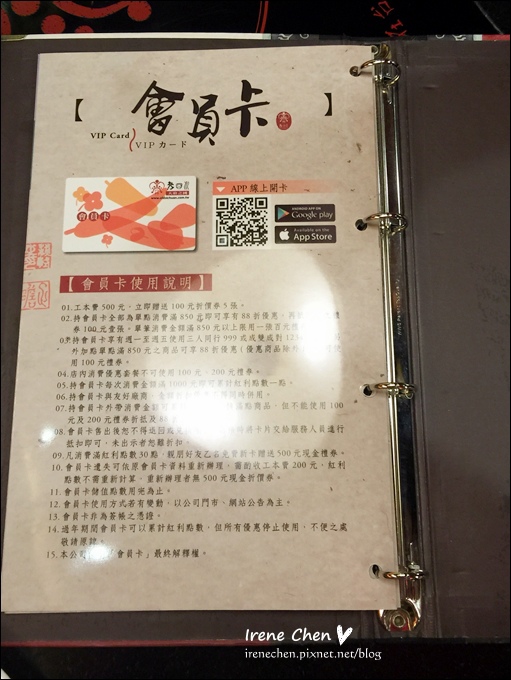 【會員卡】
VIP Card
VIP カード
會員卡
APP 線上開卡
ANDROID APP ON
Google play
Available on the
App Store
【會員卡使用說明】
01.工本費500元，立即贈送100元折價券5張。
02.持會員卡全部為單點消費滿850元即可享有88折優惠，
券100元壹張。單筆消費金額滿850元以上限用一張百元
持會員卡享有週一至週五使用三人同行999或
外加點單點滿850元之商品可享88折優惠(優惠商品除外
用100元禮券。
04.店內消費優惠套餐不可使用100元、200元禮券。
05.持會員卡每次消費金額滿1000元即可累計紅利點數一點。
06.持會員卡與友好廠商
07.持會員卡外帶消費金額可
商品，但不能使用100
元及200元禮券折抵及
08.會員卡售出後恕不得退
將卡片交給服務人員進行
抵扣即可，未出示者恕難折扣。
09.凡消費滿紅利點數30點，
贈送500元現金禮券。
10.會員卡遺失可依原會員卡資料重新辦理，需酌收工本費200元，紅利
點數不需重新計算，重新辦理者無500元現金折價券。
11.會員卡儲值點數用完為止。
12.會員卡使用方式若有變動，以公司門市、網站公告為主。
13.會員卡非為簽帳之憑證。
14.過年期間會員卡可以累計紅利點數，但所有優惠停止使用，不便之處
敬請原諒。
15.本公司
「會員卡」最終解釋權。
Irene Chen
irenechen.pixnet.net/blog